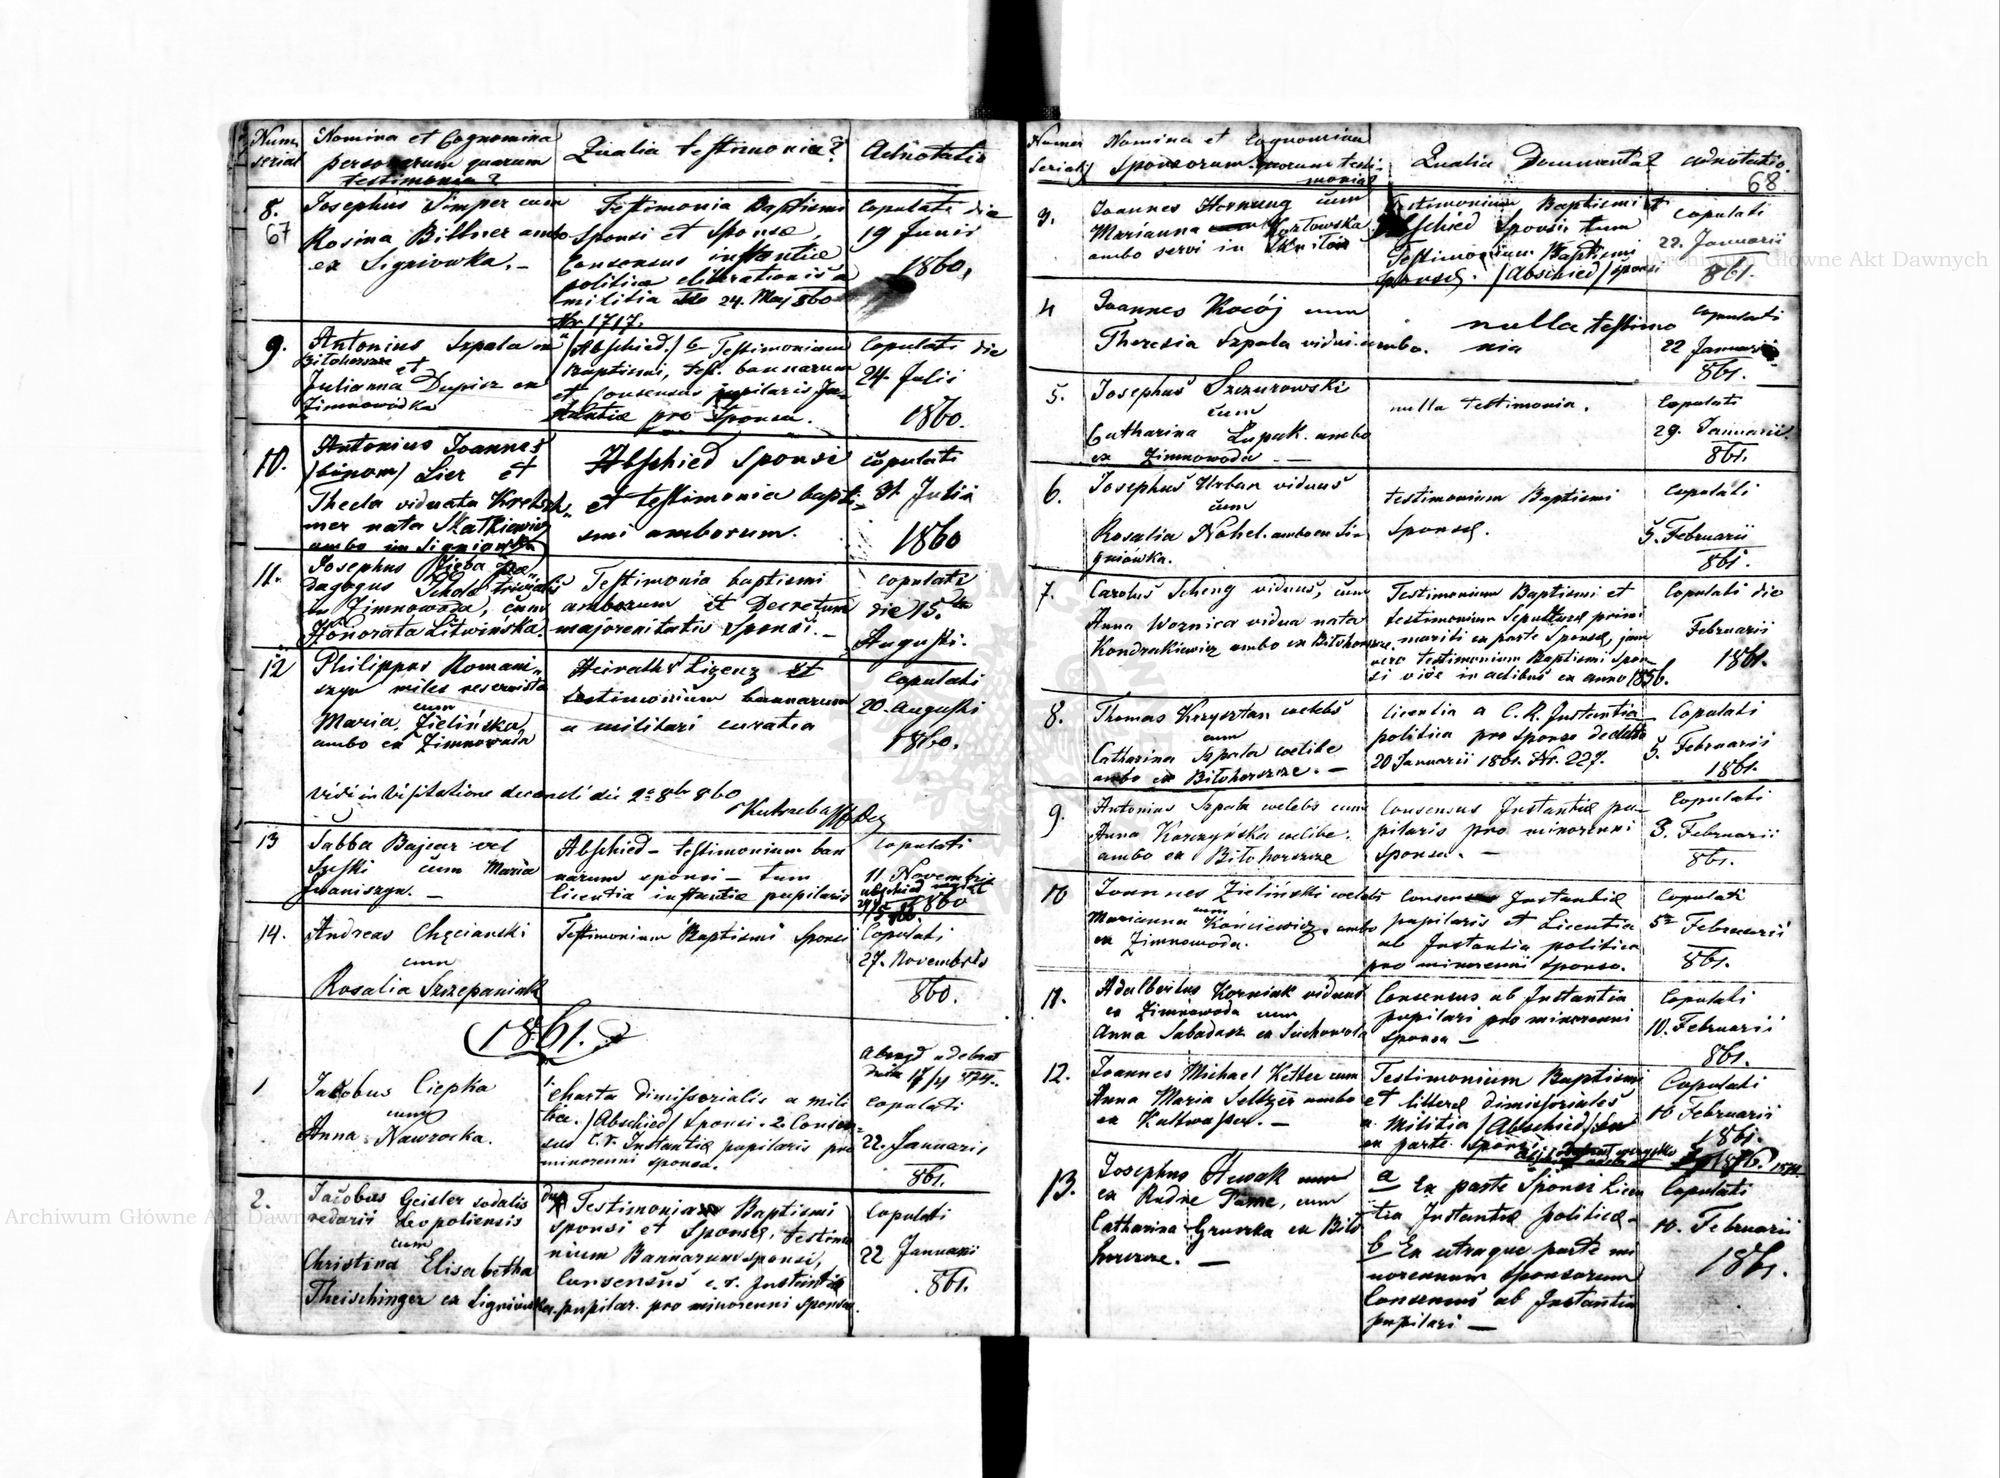 Num. serial
Nomina et Cognomina
personarum quarum
testimonia?
Qualia testimonia?
Adnotatio
8.
67
Josephus Simper cum
Rosina Billner ambo
ex Signiowka. –
Testimonia Baptismi
Sponsi et Sponsæ,
Consensus instantiæ
politicæ eliberationis a
militia dto 24. May 860
Nr 1717.
Copulati die
19 Junii
1860.
9.
Antonius Szpala ex
Bilohorszcze et
Julianna Dupicz ex
Zimnowodka
/Abschied./ b Testimonium
Baptismi, Test. bannarum
et Consensus pupilaris In-
stantiæ pro Sponsa.
Copulati die
24 Julii
1860.
10.
Antonius Joannes
/binom/ Lier et
Thecla viduata Kretsch-
mer nata Skatkiewicz
ambo in Signiowka
Abschied Sponsi
et testimonia bapti-
smi amborum.
copulati
31. Julii
1860
11.
Josephus Zieba pæ-
dagogus Scholæ trivialis
in Zimnowoda, cum
Honorata Litwińska.
Testimonia baptismi
amborum et Decretum
majorenitatis Sponsi. –
copulati
die 15.
Augusti.
12
Philippus Romani-
szyn miles reservista
cum
Maria Zielińska
ambo ex Zimnowoda
Heiraths Lizenz et
testimonium bannarum
a militari curatia
Copulati
20. Augusti
1860.
Vidi in Visitatione decanali die 2a 8br 860
13
Sabba Bajcar vel
cum Maria
Iwaniszyn. –
Abschied – testimonium ban
narum sponsi – tum
licentia instantiæ pupilaris
Copulati
11. Novembris
860
14.
Andreas Chęcianski
cum
Rosalia Szczepaniak
Testimonium Baptismi Sponsi
Copulati
27. Novembris
860.
1861.
1
Jacobus Ciepka
cum
Anna Nawrocka.
1. Charta dimissorialis a mili
tia. /Abschied/ Sponsi. 2. Consen-
sus C. r. Instantiæ pupilaris pro
minorenni sponsa.
copulati
22. Januarii
861.
2.
Jacobus Geisler sodalis
Leopoliensis
cum
Christina Elisabetha
Theischinger ex Signiowka.
Testimonia Baptismi
sponsi et Sponsæ, testimo
nium Bannarum sponsi,
Consensus c. r. Instantiæ
pupilar. pro minorenni sponsa.
Copulati
22 Januarii
861.
Numer
Serialis
Nomina et Cognomina
Sponsorum quorum testi-
monia?
Qualia Documenta?
adnotatio.
68
3.
Joannes Hornung cum
Marianna Kozłowska
ambo servi in Skniłów
Testimonium Baptismi et
Abschied Sponsi tum
Testimonium Baptismi
sponsæ. /Abschied/ sponsi
Copulati
22. Januarii
861.
4
Joannes Kocój cum
Theresia Szpala vidui ambo.
nulla testimo
nia
Copulati
22 Januarii
861.
5.
Josephus Szczurowski
cum
Catharina Łupak. ambo
ex Zimnowoda –
nulla testimonia.
Copulati
29. Januarii
861.
6.
Josephus Urban viduus
cum
Rosalia Nohel. ambo ex Si-
gniówka.
testimonium Baptismi
Sponsæ.
Copulati
5. Februarii
861.
7.
Carolus Scheng viduus, cum
Anna Woznica vidua nata
Kondrackiewicz ambo ex Bilohorszcze.
Testimonium Baptismi et
testimonium Sepulturæ primi
mariti ex parte Sponsæ, jam
vero testimonium Baptismi Spon-
si vide in actibus ex anno 1856.
Copulati die
Februarii
1861.
8.
Thomas Krzysztan cœlebs
cum
Catharina Szpala cœlibe
ambo ex Biłohorszcze. –
licentia a C. R. Instantia
politica pro sponso
20 Januarii 1861. Nr. 227.
Copulati
5. Februarii
1861.
9.
Antonius Szpala cœlebs cum
Anna Korczyńska cœlibe.
ambo ex Biłohorszcze
Consensus Instantiæ pu-
pilaris pro minorenni
sponsa. –
Copulati
3. Februarii
861.
10
Joannes Zieliński cœlebs
cum
Marianna Kościewicz, ambo
ex Zimnowoda.
Consensus Instantiæ
pupilaris et Licentia
ab Instantia politica
pro minorenni sponso.
Copulati
5 Februarii
861.
11.
Adalbertus Korniak viduus
ex Zimnowoda cum
Anna Sabadasz ex Suchowola
Consensus ab Instantia
pupilari pro minorenni
sponsa –
Copulati
10. Februarii
861.
12.
Joannes Michael Ketter cum
Anna Maria Seltzer ambo
ex Kaltwasser. –
Testimonium Baptismi
et litteræ dimissoriales
a Militia /Abschied/
ex parte Sponsi
Copulati
10 Februarii
1861.
13.
Josephus Husak
ex Rudne Dame, cum
Catharina Gruszka ex Biło
horszcze. –
a Ex parte Sponsi Licen
tia Instantiæ politicæ –
b Ex utraque parte mi
norennum sponsorum
Consensus ab Instantia
pupilari –
Copulati
10. Februarii
1861.
Archiwum Główne Akt Dawnych
Archiwum Główne Akt Dawnych